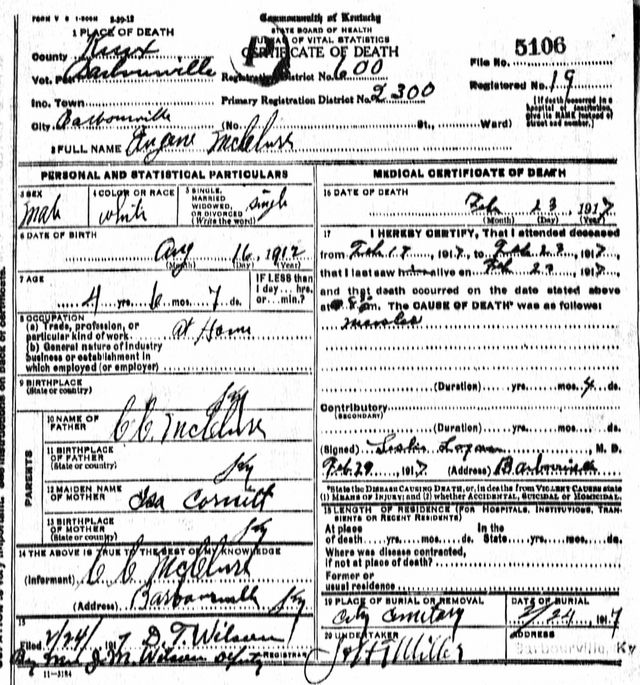 FORM V S 1-500M 2-29-12
Commonwealth of Kentucky
STATE BOARD OF HEALTH
BUREAU OF VITAL STATISTICS
CERTIFICATE OF DEATH
1 PLACE OF DEATH
County Knox
Vot. Pct. Barbourville
Inc. Town
City Barbourville
Registration District No. 600
Primary Registration District No. 2300
File No. 5106
Registered No. 19
(If death occurred in a hospital or institution, give its NAME instead of street and number.)
(No. St., Ward)
2 FULL NAME Eugene McClure
PERSONAL AND STATISTICAL PARTICULARS
3 SEX Male
4 COLOR OR RACE white
5 SINGLE, MARRIED WIDOWED, OR DIVORCED (Write the word) Single
6 DATE OF BIRTH
Aug 16, 1912
(Month) (Day) (Year)
7 AGE
4 yrs. 6 mos. 7 ds.
IF LESS than 1 day... hrs. or... min.?
8 OCCUPATION
(a) Trade, profession, or particular kind of work. at Home
(b) General nature of industry business or establishment in which employed (or employer)
9 BIRTHPLACE
(State or country) Ky
PARENTS
10 NAME OF FATHER C. C. McClure
11 BIRTHPLACE OF FATHER
(State or country) Ky
12 MAIDEN NAME OF MOTHER Ida Cornett
13 BIRTHPLACE OF MOTHER
(State or country) Ky
14 THE ABOVE IS TRUE TO THE BEST OF MY KNOWLEDGE
(Informant) C C McClure
(Address) Barbourville Ky
15
Filed 2/24/ 1917 D. T. Wilson
REGISTRAR
By Mrs J. M. Wilson Deputy
11-3184
MEDICAL CERTIFICATE OF DEATH
16 DATE OF DEATH
Feb 23, 1917
(Month) (Day) (Year)
17 I HEREBY CERTIFY, That I attended deceased
from Feb 17, 1917, to Feb 23, 1917
that I last saw h alive on Feb 23, 1917
and that death occurred on the date stated above
at m. The CAUSE OF DEATH* was as follows:
measles
(Duration) yrs. mos. 4 ds.
Contributory
(SECONDARY)
(Duration) yrs. mos. ds.
(Signed) Leslie Logan, M. D.
Feb. 24, 1917 (Address) Barbourville
*State the DISEASE CAUSING DEATH, or, in deaths from VIOLENT CAUSES state (1) MEANS OF INJURY; and (2) whether ACCIDENTAL, SUICIDAL or HOMICIDAL.
18 LENGTH OF RESIDENCE (FOR HOSPITALS, INSTITUTIONS, TRANSIENTS OR RECENT RESIDENTS)
At place of death yrs. mos. ds. In the State yrs. mos. ds.
Where was disease contracted, if not at place of death?
Former or usual residence
19 PLACE OF BURIAL OR REMOVAL
City Cemetary
DATE OF BURIAL
2/24, 1917
20 UNDERTAKER
Miller
ADDRESS
Barbourville, Ky